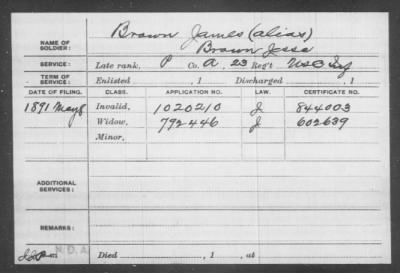 Brown James (alias)
NAME OF SOLDIER:
Brown Jesse
SERVICE: Late rank, P Co. A, 23 Reg't USC Inf
TERM OF SERVICE: Enlisted , 1 Discharged , 1
DATE OF FILING. CLASS. APPLICATION NO. LAW. CERTIFICATE NO.
1891 May 8 Invalid, 1020210 J 844003
Widow, 792446 J 602639
Minor,
ADDITIONAL SERVICES:
REMARKS:
N.D.A.
Died , 1 , at